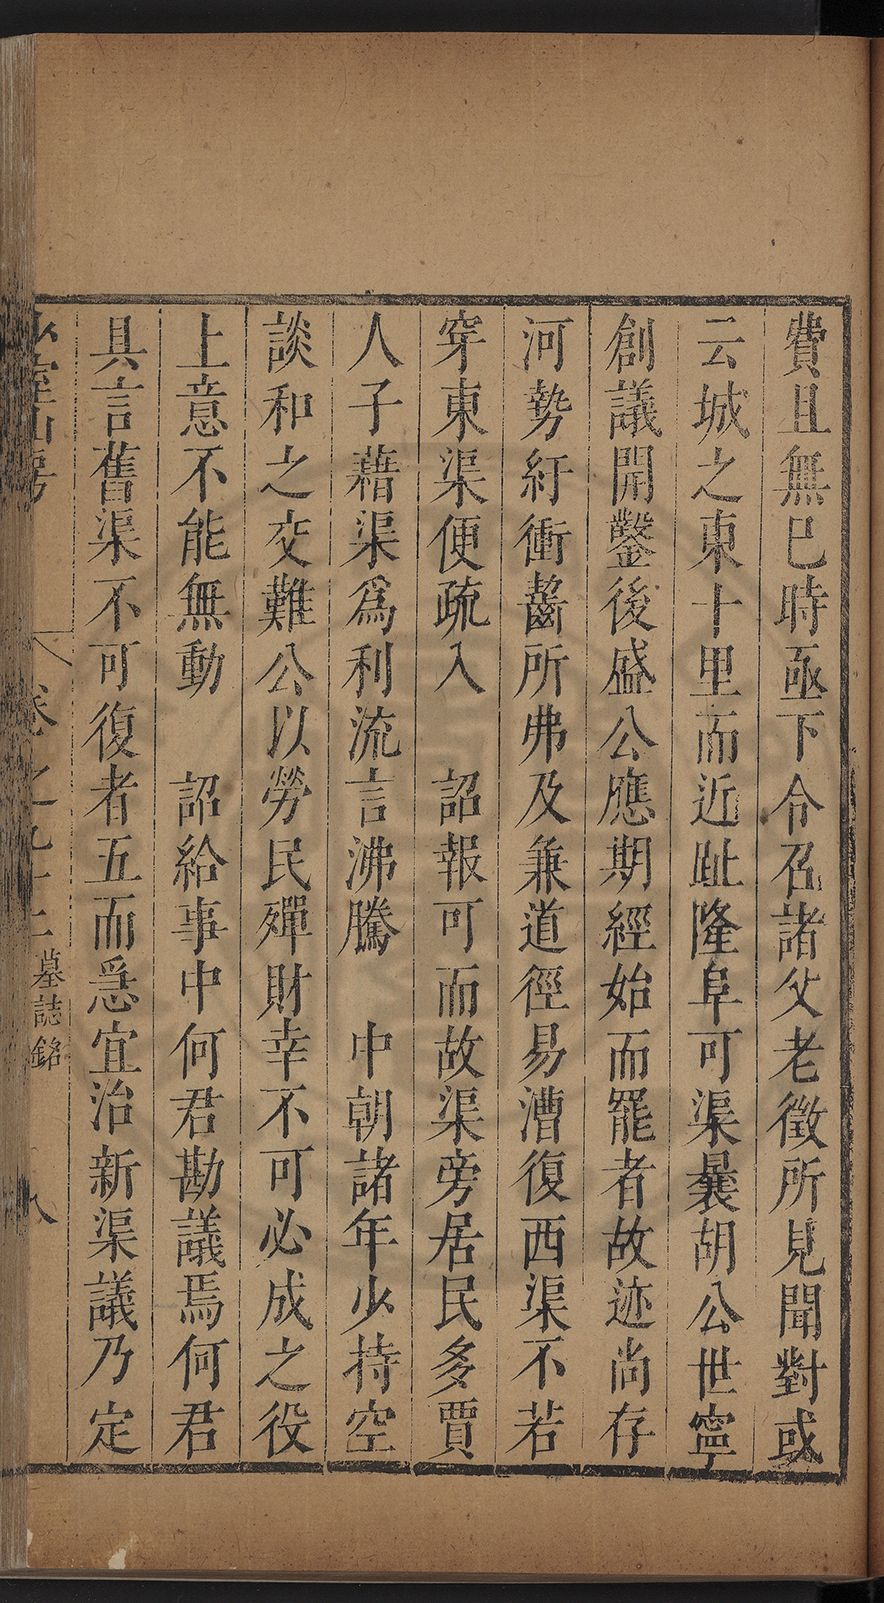 費且無已時亟下令召諸父老徵所見聞對或
云城之東十里而近趾隆阜可渠曩胡公世寧
創議開鑿後盛公應期經始而罷者故迹尚存
河勢紆衝齧所弗及兼道徑易漕復西渠不若
穿東渠便疏入　詔報可而故渠旁居民多賈
人子藉渠爲利流言沸騰　中朝諸年少持空
談和之交難公以勞民殫財幸不可必成之役
上意不能無動　詔給事中何君勘議焉何君
具言舊渠不可復者五而惡宜治新渠議乃定
少室山房　卷之九十二　墓誌銘　八